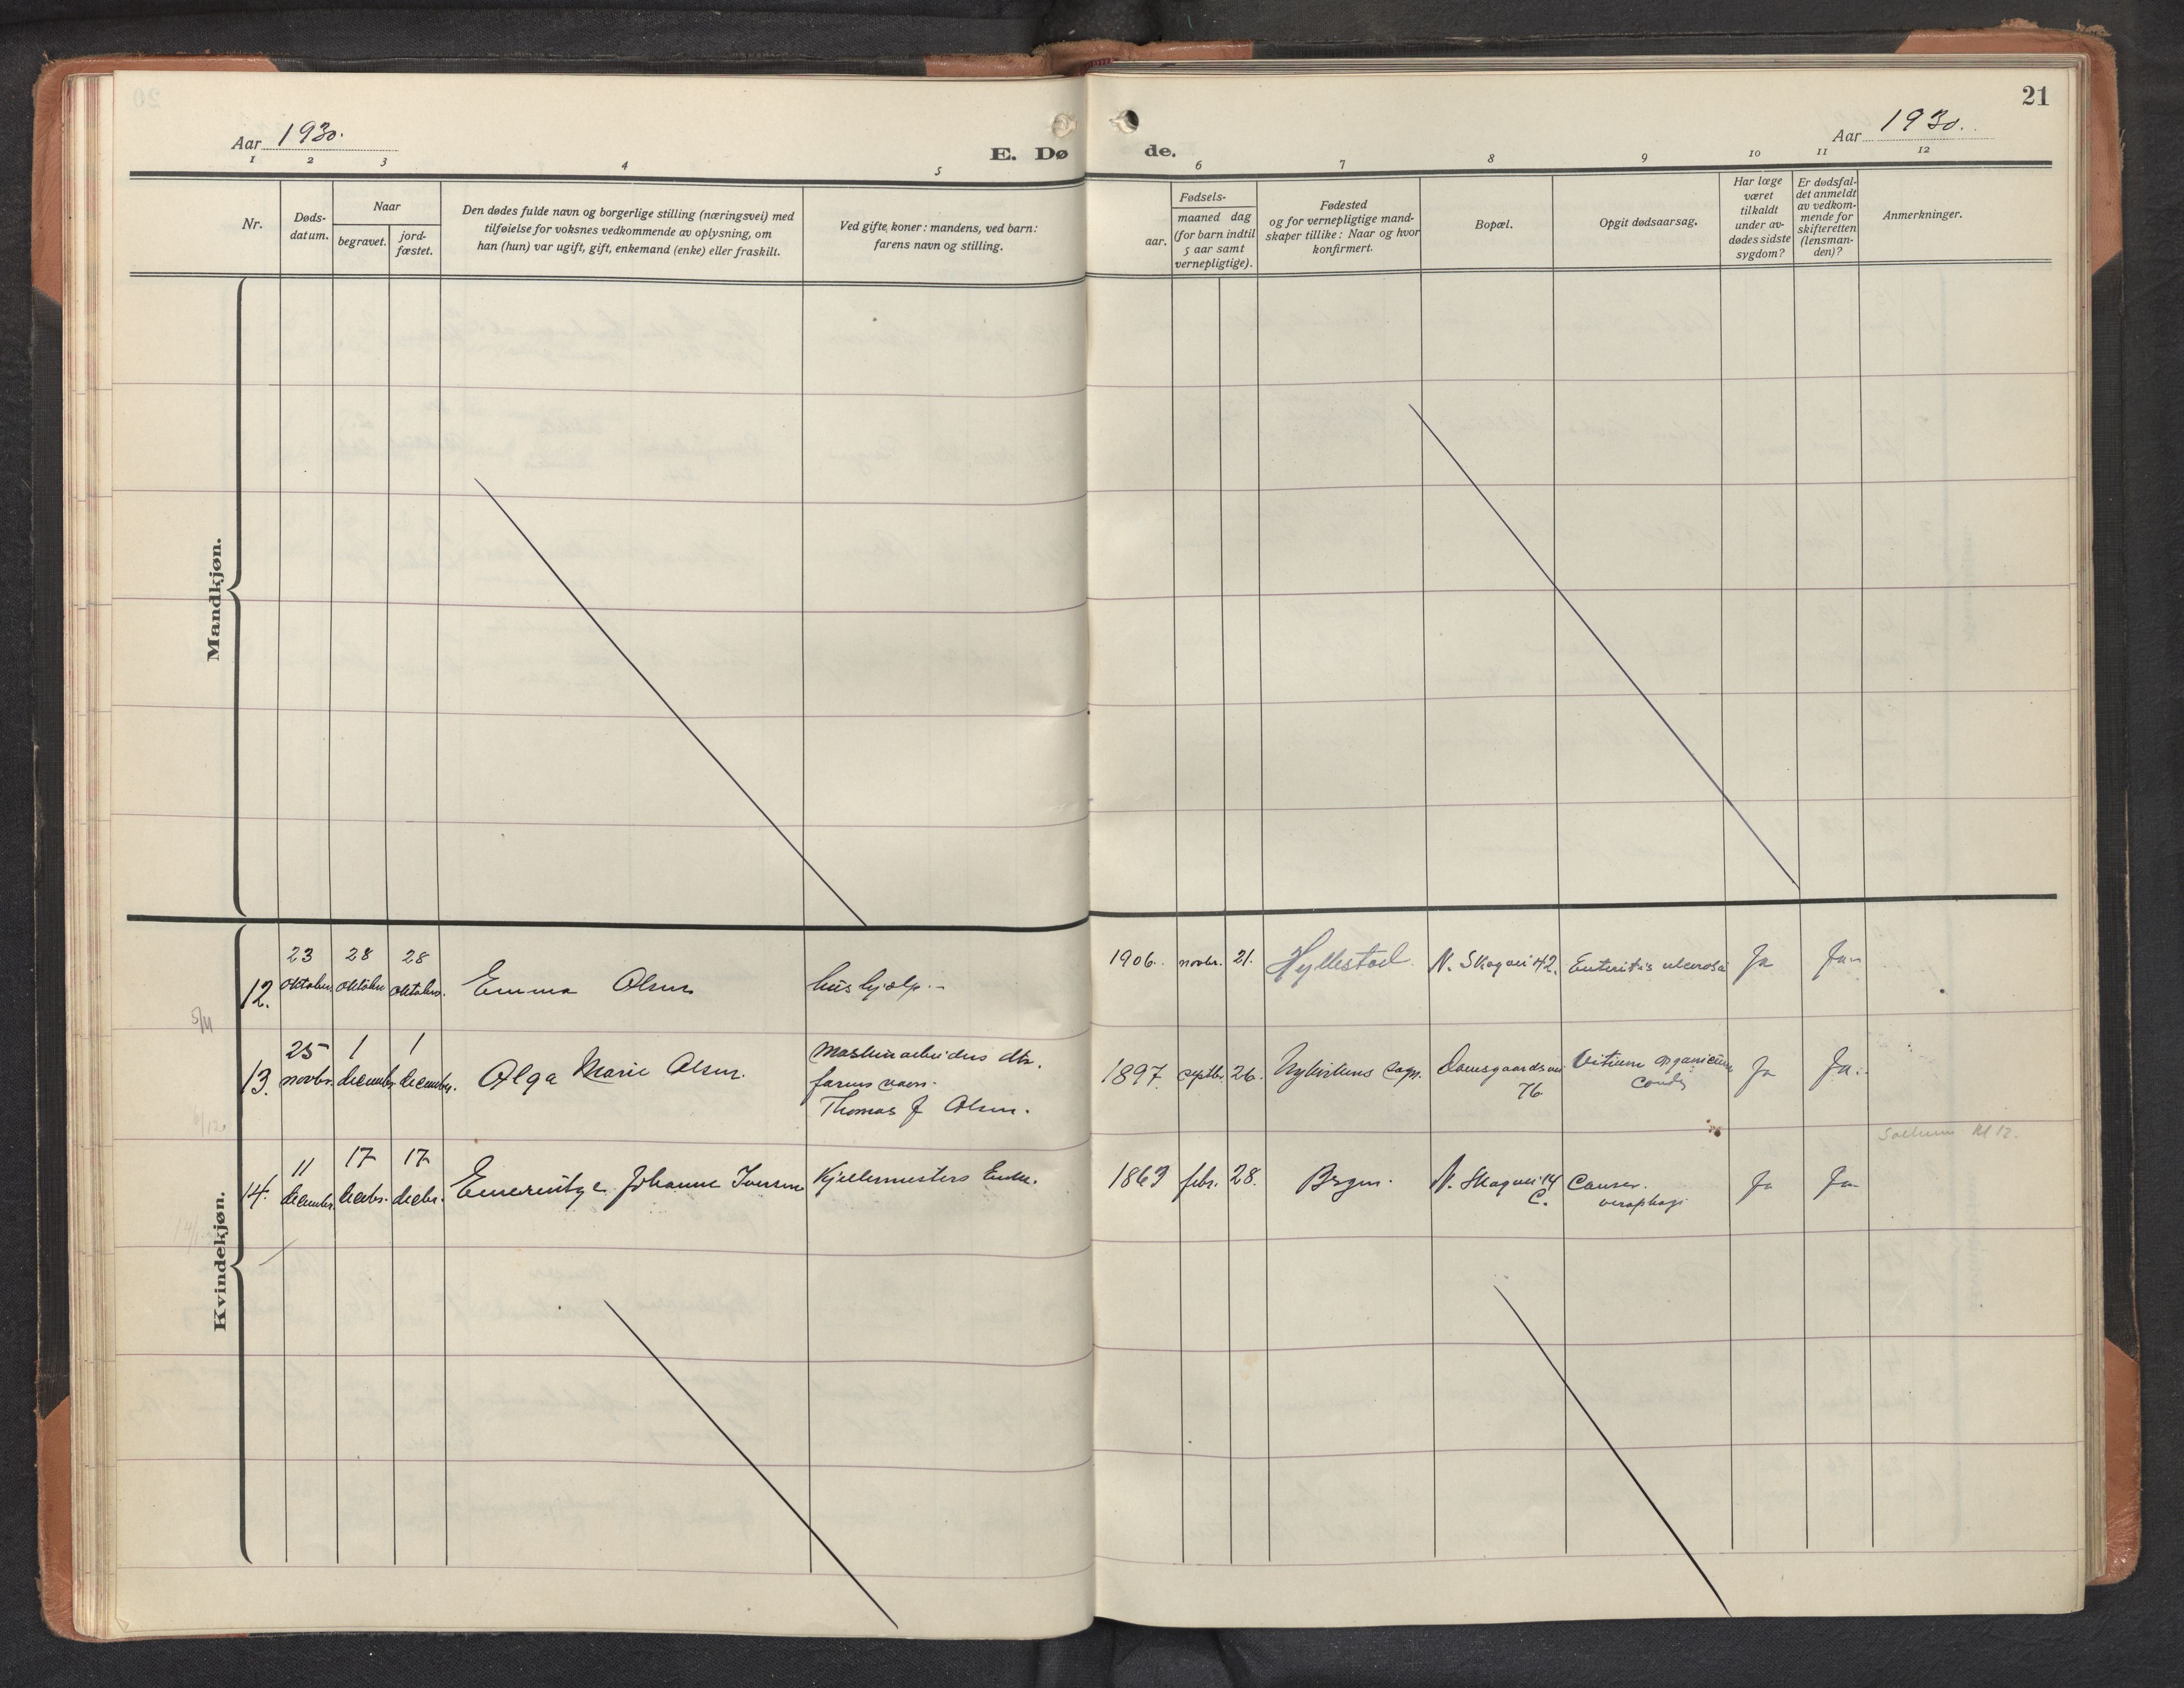 21
Aar 1930.
Aar 1930.
E. Dø de.
1 2 3 4 5 6 7 8 9 10 11 12
Nr.
Døds-
datum.
Naar
begravet.
jord-
fæstet.
Den dødes fulde navn og borgerlige stilling (næringsvei) med
tilføielse for voksnes vedkommende av oplysning, om
han (hun) var ugift, gift, enkemand (enke) eller fraskilt.
Ved gifte koner: mandens, ved barn:
farens navn og stilling.
Fødsels-
aar.
maaned dag
(for barn indtil
5 aar samt
vernepligtige).
Fødested
og for vernepligtige mand-
skaper tillike: Naar og hvor
konfirmert.
Bopæl.
Opgit dødsaarsag.
Har læge
været
tilkaldt
under av-
dødes sidste
sygdom?
Er dødsfal-
det anmeldt
av vedkom-
mende for
skifteretten
(lensman-
den)?
Anmerkninger.
Mandkjøn.
Kvindekjøn.
12. 23 oktober. 28 oktober 28 oktober. Emma Olsen hushjælp. 1906. novbr. 21. Hyllestad. N. Skogvei 42. Enteritis ulcerosa Ja Ja
5/11
13. 25 novbr. 1 decembr. 1 decembr. Olga Marie Olsen. Maskinarbeiders dtr.
farens navn.
Thomas J Olsen.
1897. septbr. 26. Nykirkens sogn. Damsgaardsvei
76
Vitium organicum
cordis
Ja Ja.
14. 11 december. 17 decbr. 17 decbr. Emerentze Johanne Iversen Kjellermesters Enke. 1863 febr. 28. Bergen. N. Skogvei 14
C.
Cancer.
Ja Ja